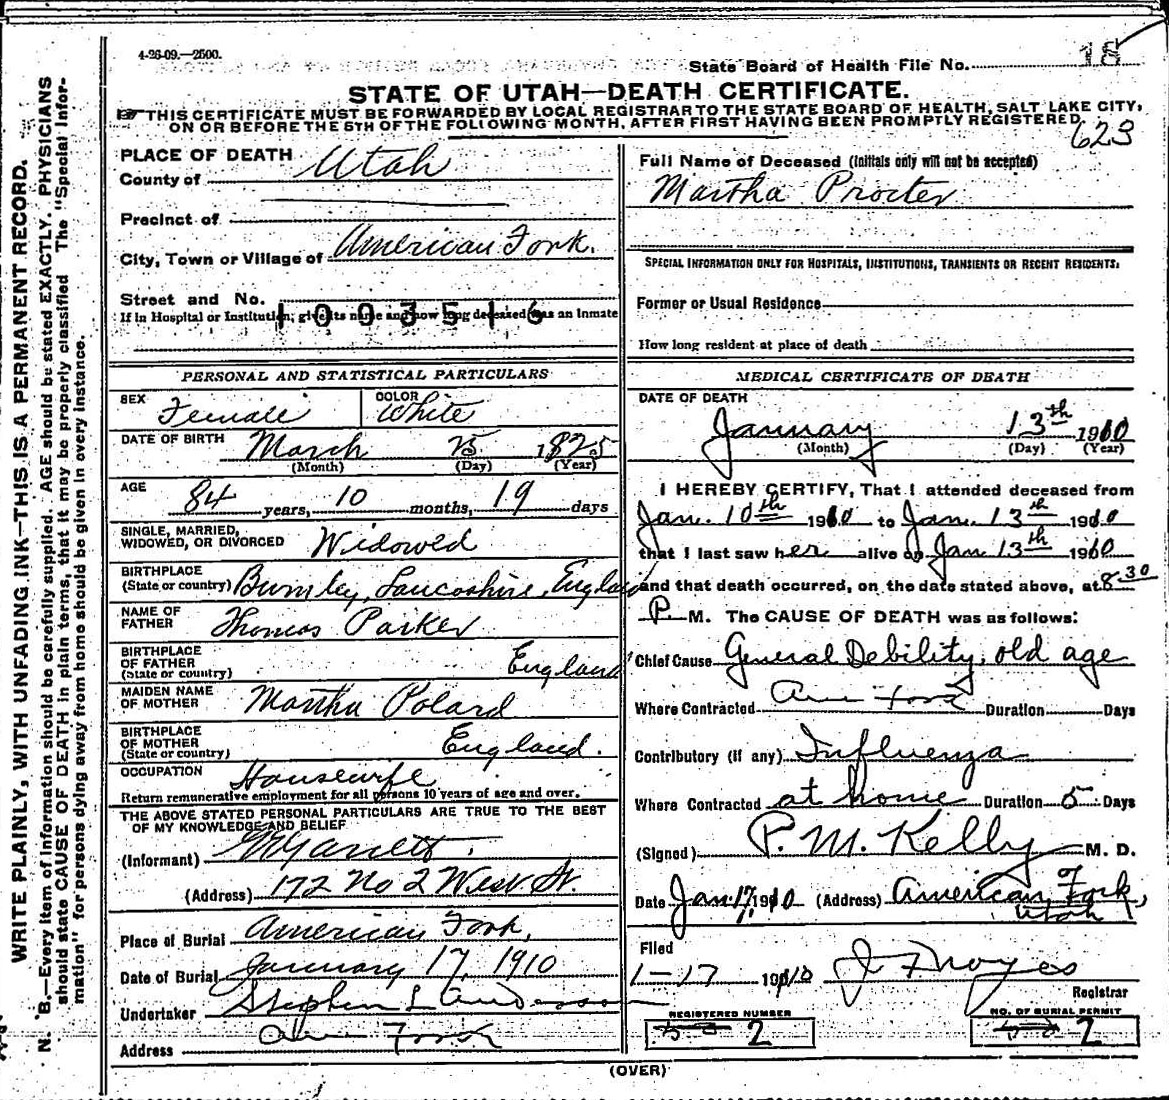 4-26-09.—2500.
State Board of Health File No. 18
STATE OF UTAH—DEATH CERTIFICATE.
☞ THIS CERTIFICATE MUST BE FORWARDED BY LOCAL REGISTRAR TO THE STATE BOARD OF HEALTH, SALT LAKE CITY,
ON OR BEFORE THE 5TH OF THE FOLLOWING MONTH, AFTER FIRST HAVING BEEN PROMPTLY REGISTERED
623
WRITE PLAINLY, WITH UNFADING INK—THIS IS A PERMANENT RECORD.
N. B.—Every item of information should be carefully supplied. AGE should be stated EXACTLY. PHYSICIANS
should state CAUSE OF DEATH in plain terms, that it may be properly classified The "Special Infor-
mation" for persons dying away from home should be given in every instance.
PLACE OF DEATH
County of Utah
Precinct of
City, Town or Village of American Fork.
Street and No.
If in Hospital or Institution, give its name and how long deceased was an inmate
1003516
Full Name of Deceased (Initials only will not be accepted)
Martha Procter
SPECIAL INFORMATION ONLY FOR HOSPITALS, INSTITUTIONS, TRANSIENTS OR RECENT RESIDENTS:
Former or Usual Residence
How long resident at place of death
PERSONAL AND STATISTICAL PARTICULARS
SEX Female COLOR White
DATE OF BIRTH March 25 1825
(Month) (Day) (Year)
AGE 84 years, 10 months, 19 days
SINGLE, MARRIED,
WIDOWED, OR DIVORCED Widowed
BIRTHPLACE
(State or country) Burnley, Lancashire, England
NAME OF
FATHER Thomas Parker
BIRTHPLACE
OF FATHER
(State or country) England
MAIDEN NAME
OF MOTHER Martha Polard
BIRTHPLACE
OF MOTHER
(State or country) England.
OCCUPATION Housewife
Return remunerative employment for all persons 10 years of age and over.
THE ABOVE STATED PERSONAL PARTICULARS ARE TRUE TO THE BEST
OF MY KNOWLEDGE AND BELIEF
(Informant)
(Address) 172 No 2 West St.
Place of Burial American Fork,
Date of Burial January 17, 1910
Undertaker Stephen L Anderson
Address Am Fork
MEDICAL CERTIFICATE OF DEATH
DATE OF DEATH
January 13th 1910
(Month) (Day) (Year)
I HEREBY CERTIFY, That I attended deceased from
Jan. 10th 1910 to Jan. 13th 1910
that I last saw her alive on Jan 13th 1910
and that death occurred, on the date stated above, at 8 30
P. M. The CAUSE OF DEATH was as follows:
Chief Cause General Debility, old age
Where Contracted Am Fork Duration Days
Contributory (if any) Influenza
Where Contracted at home Duration 5 Days
(Signed) P. M. Kelly M. D.
Date Jan 17, 1910 (Address) American Fork,
Utah
Filed
1-17 1910 J F Noyes
Registrar
REGISTERED NUMBER
2
NO. OF BURIAL PERMIT
2
(OVER)